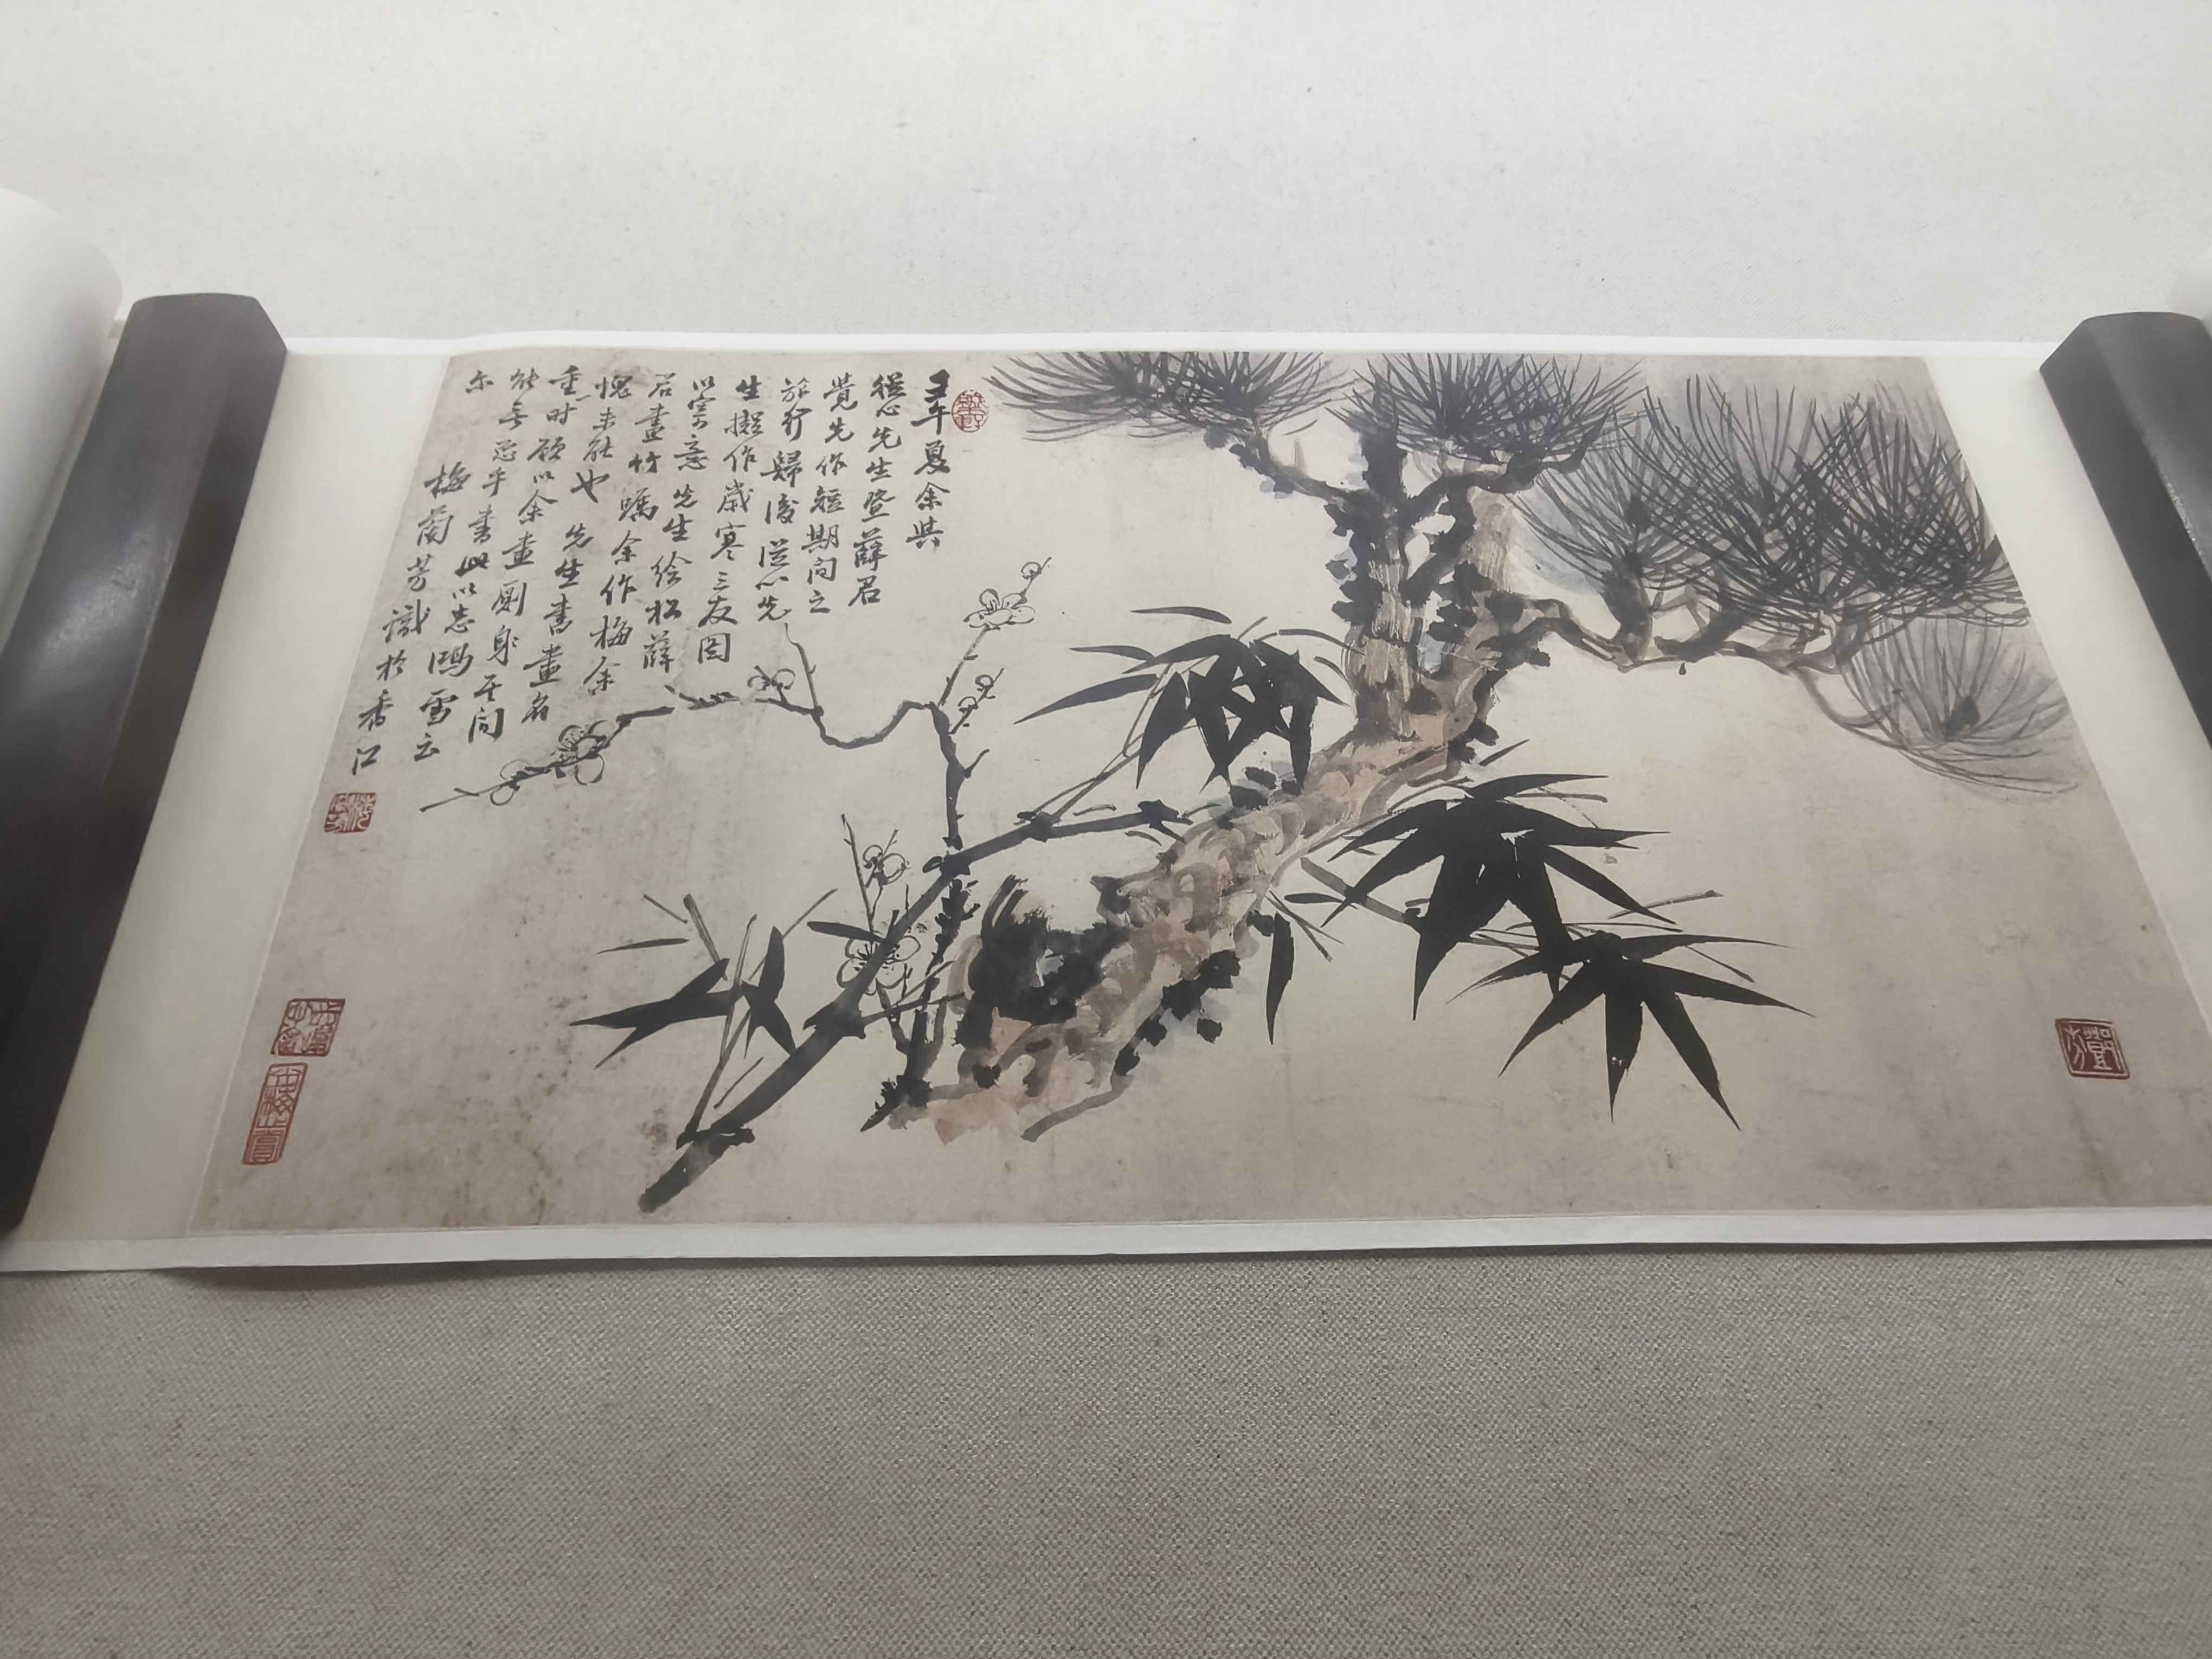 壬午夏余與
從心先生暨薛君
覺先作短期間之
旅行歸後從心先
生擬作歲寒三友圖
以寄意先生绘松薛
君畫竹囑余作梅余
愧未能也先生書畫名
重时顧以余畫厠身其间
能無忝乎書此以志鴻雪云
尔
梅蘭芳識於香江